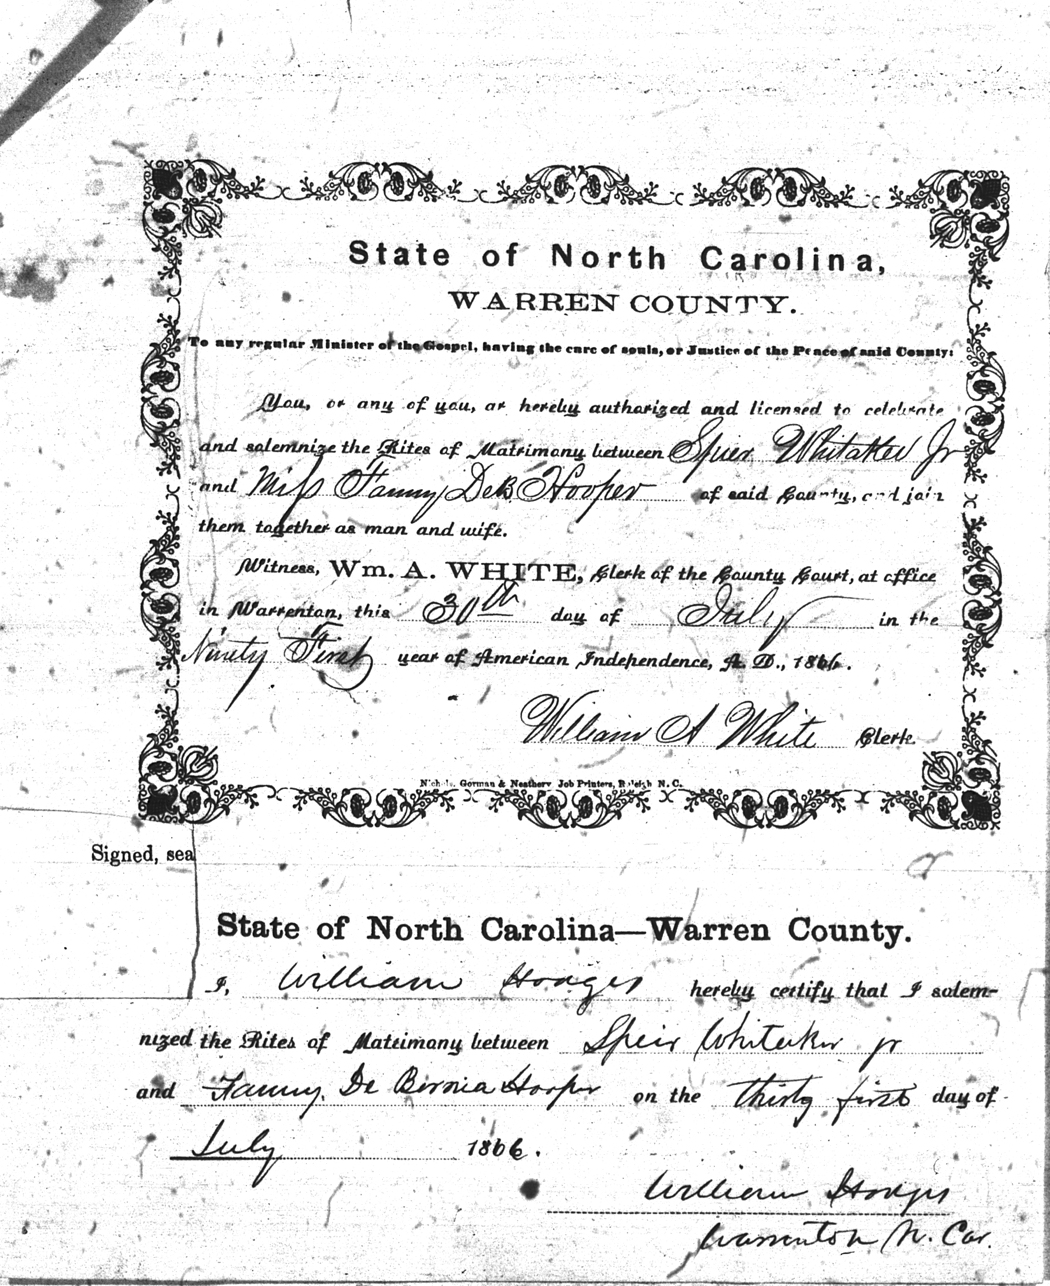 State of North Carolina,
WARREN COUNTY.
To any regular Minister of the Gospel, having the care of souls, or Justice of the Peace of said County:
You, or any of you, ar hereby authorized and licensed to celebrate
and solemnize the Rites of Matrimony between Speir Whitaker Jr
and Miss Fanny DeB Hooper of said County, and join
them together as man and wife.
Witness, Wm. A. WHITE, Clerk of the County Court, at office
in Warrenton, this 30th day of July in the
Ninety First year of American Independence, A. D., 1866.
William A White Clerk.
Nichols, Gorman & Neathery Job Printers, Raleigh N. C.
Signed, sea
State of North Carolina—Warren County.
I, William Hodges hereby certify that I solem-
nized the Rites of Matrimony between Speir Whitaker jr
and Fanny De Bernia Hooper on the thirty first day of
July 1866.
William Hodges
Warrenton N. Car.